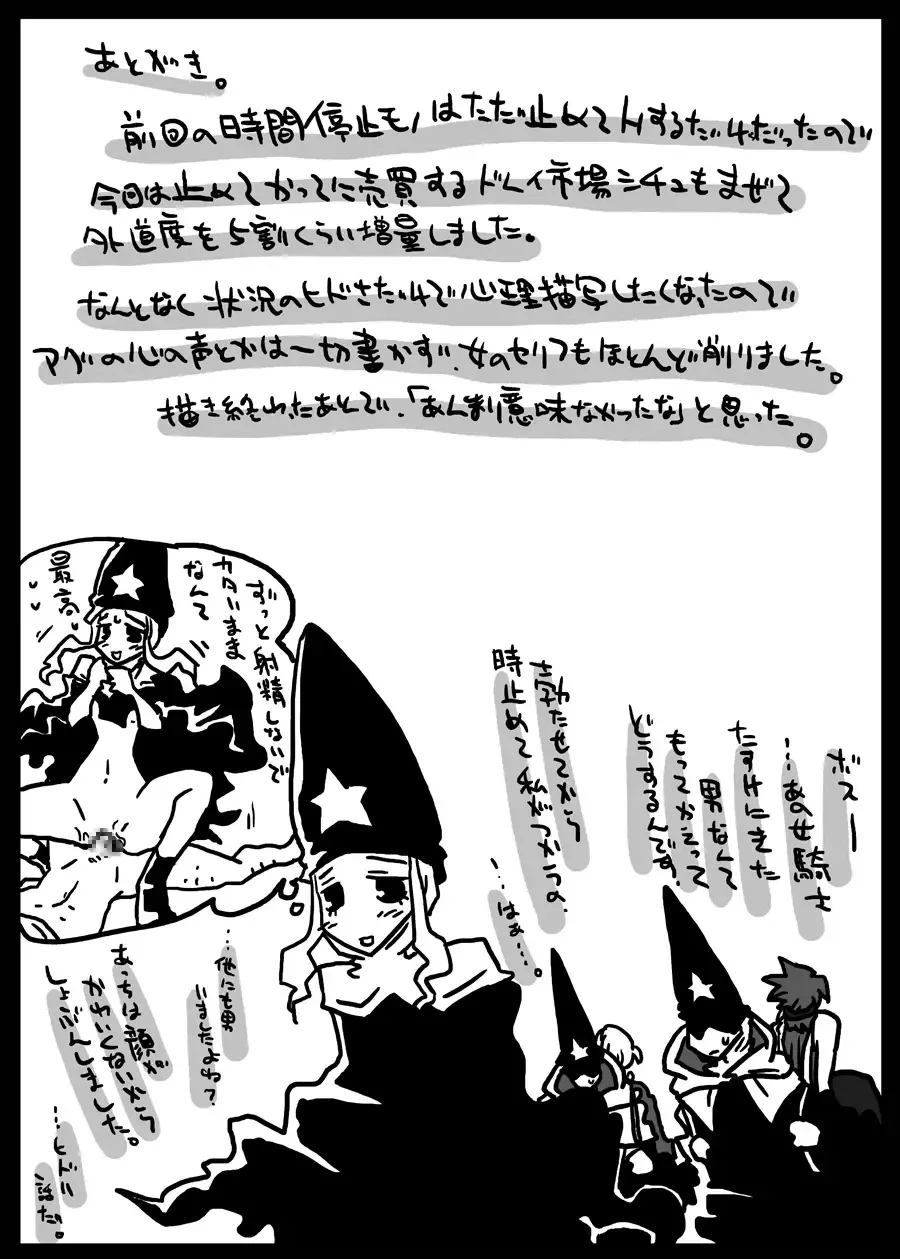 あとがき。
前回の時間停止モノはただ止めてHするだけだったので
今回は止めてかってに売買するドレイ市場シチュもまぜて
外道度を5割くらい増量しました。
なんとなく状況のヒドさだけで心理描写したくなったので
アヴの心の声とかは一切書かず、女のセリフもほとんど削りました。
描き終わったあとで、「あんまり意味なかったな」と思った。
ボスー
…あの女騎士
たすけにきた
男なんて
もってかえって
どうするんです。
勃たせてから
時止めて私がつかうの。
…はぁ…。
ずっと射精しないで
カタいまま
なんて
最高
…他にも男
いましたよね?
あっちは顔が
かわいくないから
しょぶんしました。
…ヒドい
話だ。